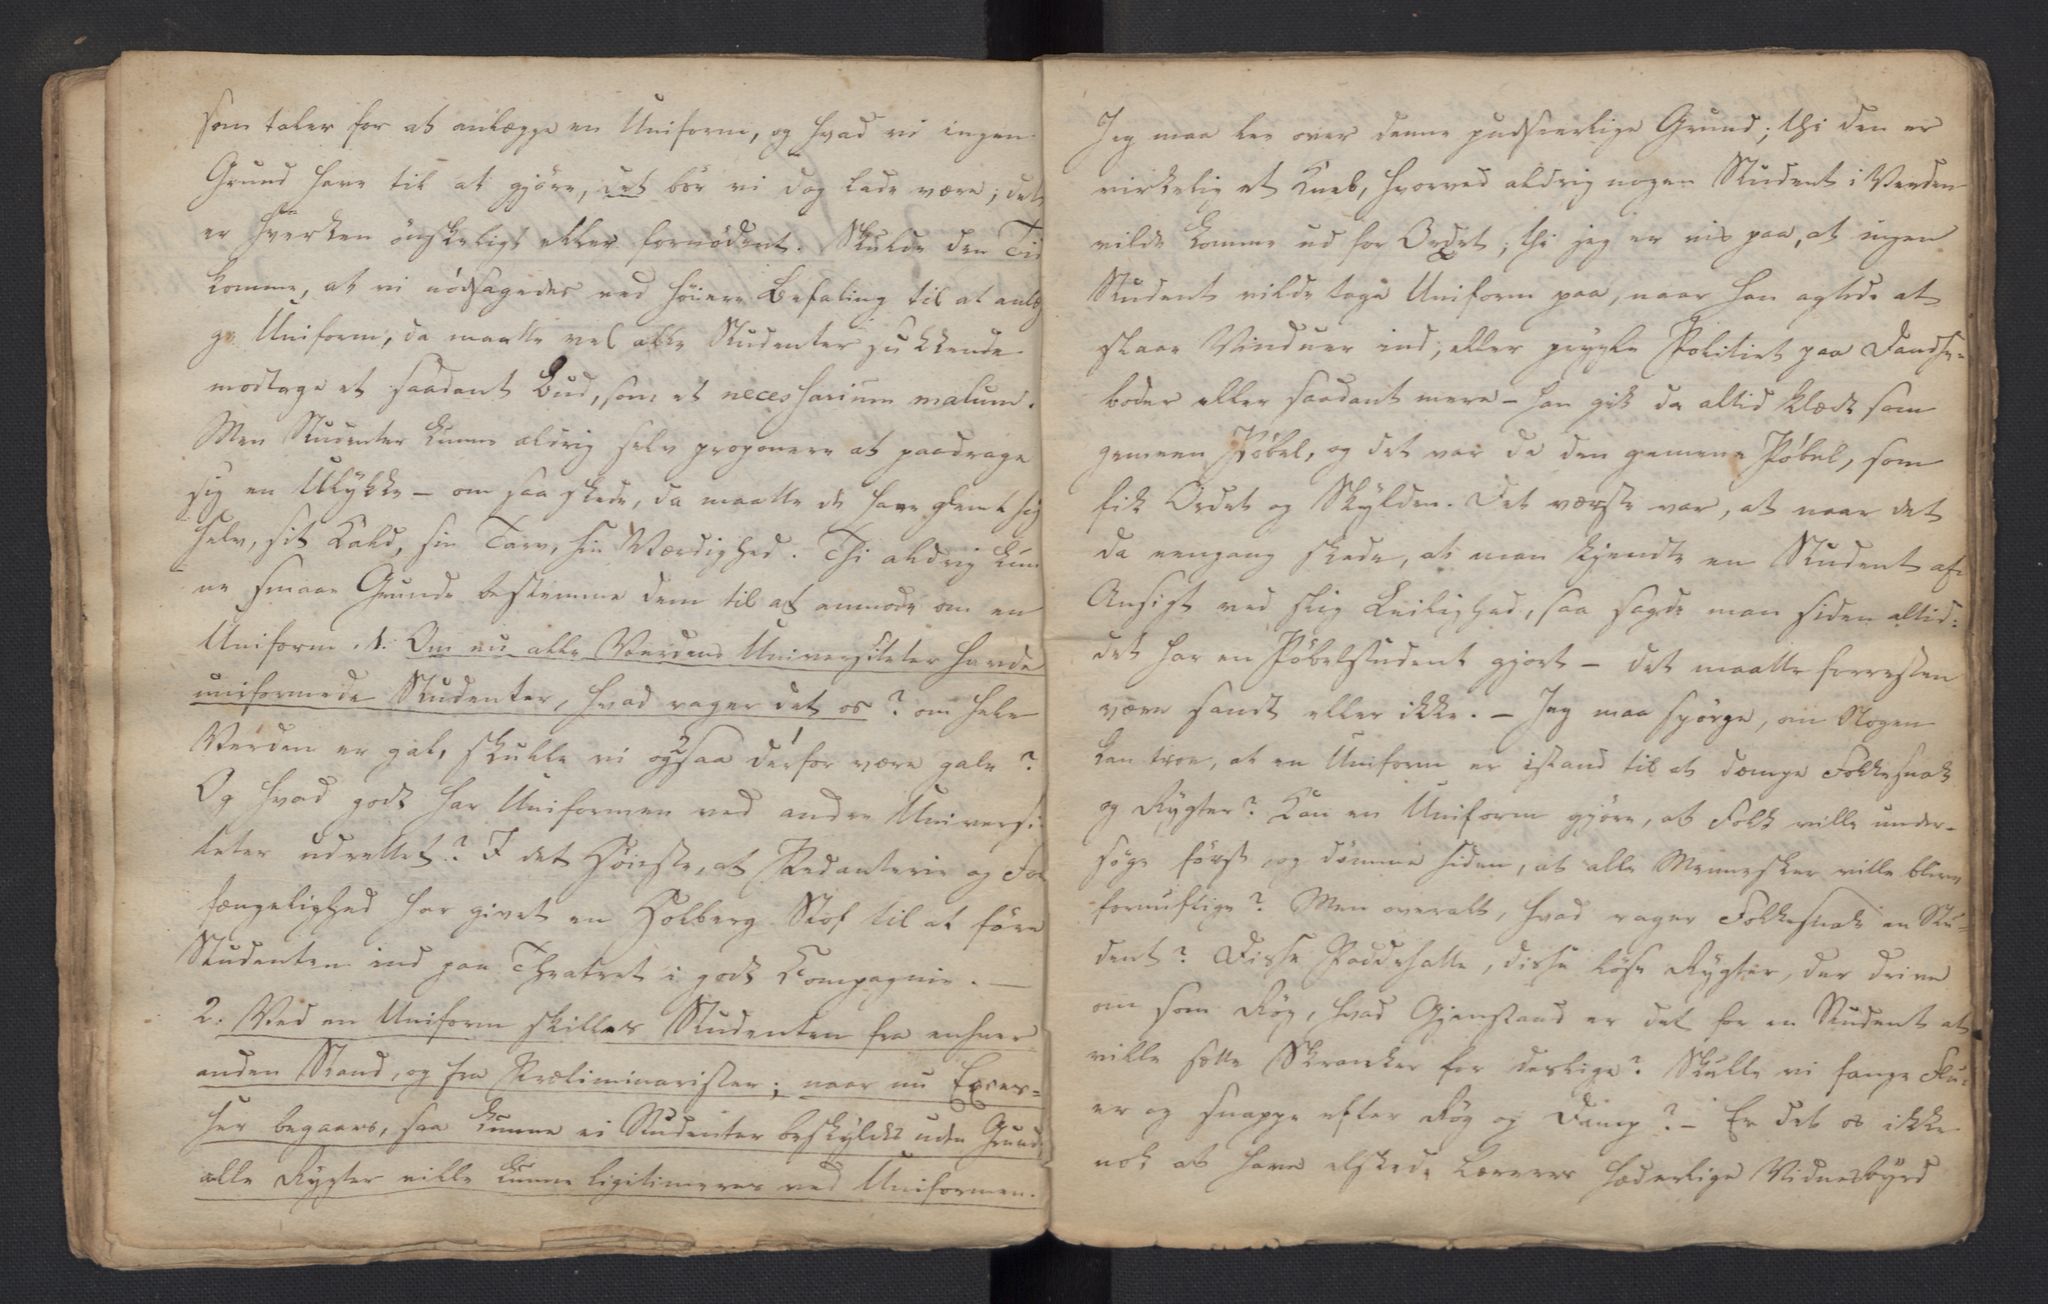 som taler for at anlægge en Uniform, og hvad vi ingen
Grund have til at gjöre, det bör vi dog lade være; det
er hverken önskeligt eller fornödent. Skulde den Tid
komme, at vi nödsagedes ved höiere Befaling til at anlæg
ge Uniform, da maatte vel alle Studenter sukkende
modtage et saadant Bud, som et necessarium malum.
Men Studenter kunne aldrig selv proponere at paadrage
sig en Ulykke – om saa skede, da maatte de have glemt sig
selv, sit Kald, sin Tarv, sin Værdighed. Thi aldrig kun
ne smaae Grunde bestemme dem til at anmode om en
Uniform. 1. Om nu alle Verdens Universiteter havde
uniformede Studenter, hvad rager det os? om hele
Verden er gal, skulle vi ogsaa derfor være gale?
Og hvad godt har Uniformen ved andre Universi
teter udrettet? I det Höieste, at Pedanterie og For
fængelighed har givet en Holberg Stof til at före
Studenten ind paa Theatret i godt Compagnie. —
2. Ved en Uniform skilles Studenten fra enhver
anden Stand, og fra Præliminarister; naar nu Exces-
ser begaaes, saa kunne ei Studenter beskyldes uden Grund
alle Rygter ville kunne ligitimeres ved Uniformen.
Jeg maa lee over denne pudseerlige Grund; thi den er
virkelig et Kneb, hvorved aldrig nogen Student i Verden
vilde komme ud for Ordet; thi jeg er vis paa, at ingen
Student vilde tage Uniform paa, naar han agtede at
slaae Vinduer ind, eller prygle Politiet paa Dandse-
boder eller saadant mere – han gik da altid klædt som
gemeen Pöbel, og det var da den gemene Pöbel, som
fik Ordet og Skylden. Det værste var, at naar det
da eengang skede, at man kjendte en Student af
Ansigt ved slig Leilighed, saa sagde man siden altid:
det har en Pöbelstudent gjort – det maatte forresten
være sandt eller ikke. – Jeg maa spörge, om Nogen
kan troe, at en Uniform er istand til at dæmpe Folkesnak
og Rygter? Kan en Uniform gjöre, at Folk ville under-
söge först og dömme siden, at alle Mennesker ville blive
fornuftige? Men overalt, hvad rager Folkesnak en Stu-
dent? Disse Paddehatte, disse löse Rygter, der drive
om som Rög, hvad Gjenstand er det for en Student at
ville sætte Skranker for deslige? Skulle vi fange Flu-
er og snappe efter Rög og Damp? – Er det os ikke
nok at have elskede Læreres hæderlige Vidnesbyrd